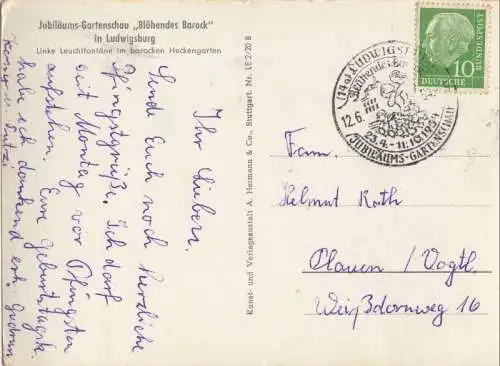 Jubiläums-Gartenschau „Blühendes Barock"
in Ludwigsburg
Linke Leuchtfontäne im barocken Heckengarten
Ihr Lieben.
Sende Euch noch herzliche
Pfingstgrüße. Ich darf
seit Montag vor Pfingsten
aufstehen. Eure Geburtstagsk.
habe ich dankend erh. Gudrun
Kunst- und Verlagsanstalt A. Hermann & Co., Stuttgart. Nr. LE 2/20 B
(14a) LUDWIGSBURG
12.6.
23.4.-11.10.1954
JUBILÄUMS-GARTENSCHAU
DEUTSCHE
BUNDESPOST
10
Fam.
Helmut Rath
Plauen / Vogtl.
Weißdornweg 16